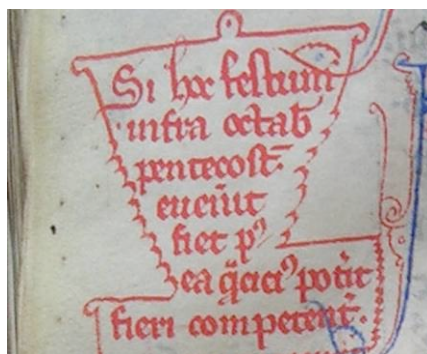 Si hoc festum
infra octab
pentecost
euenit
fiet pꝰ
ea qcicꝰ potit
fieri competent.